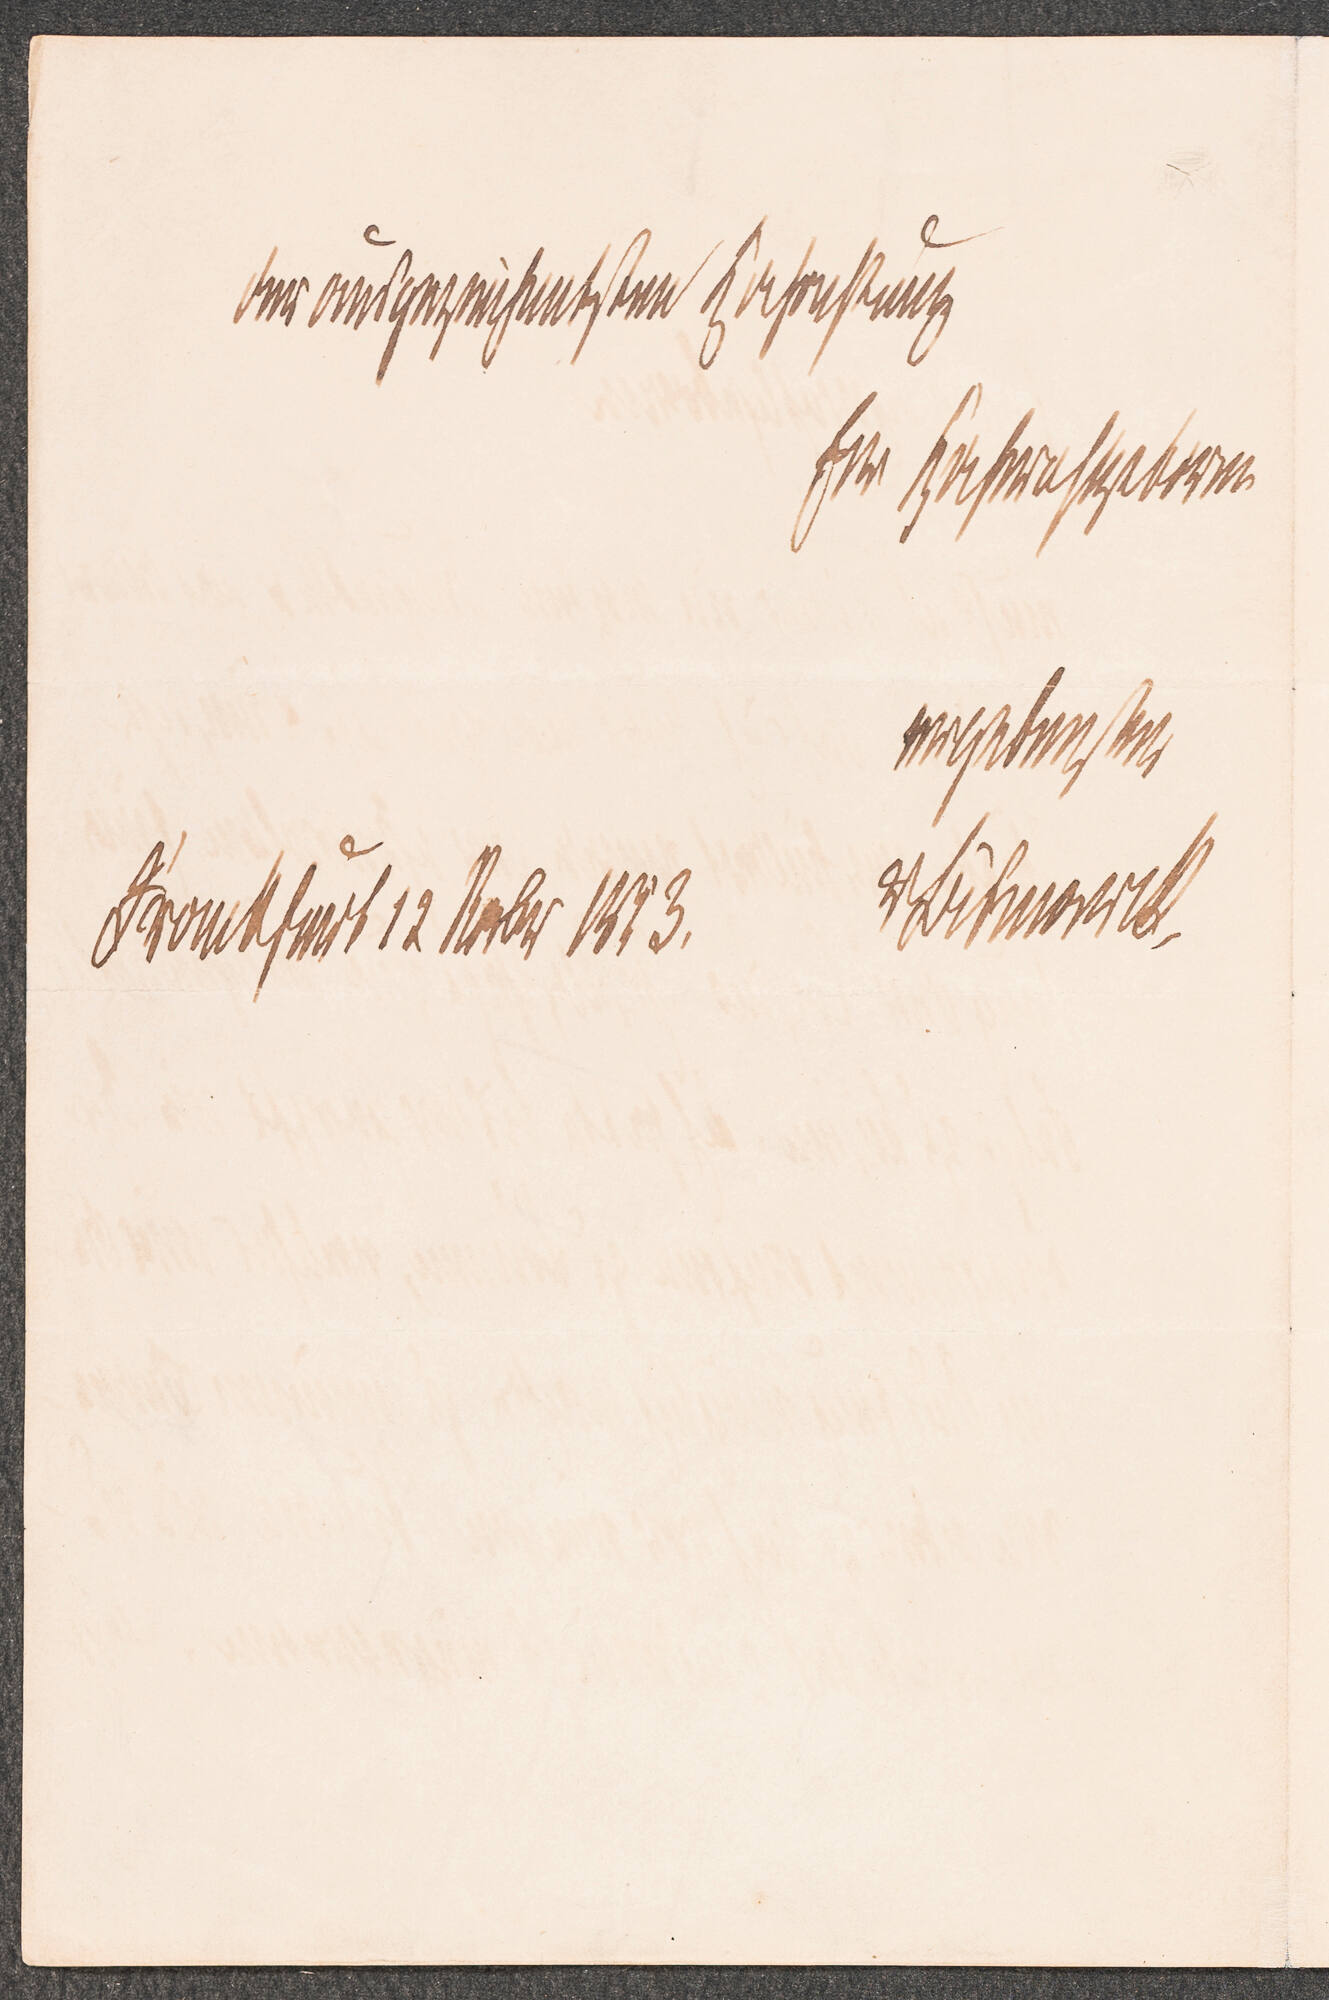 der ausgezeichnetsten Hochachtung
Eur Hochwohlgeboren
ergebenster
v Bismarck
Frankfurt 12 Novbr 1853.